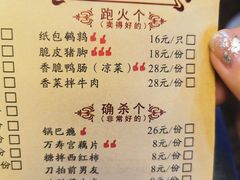 跑火个
（卖得好的）
纸包鹌鹑 16元/只
脆皮猪脚 18元/份
香脆鸭肠（凉菜） 28元/份
香菜拌牛肉 28元/份
确杀个
（非常好的）
锅巴瘾 26元/份
万寿宫藕片 8元/份
糖拌西红柿 8元/份
刀拍前男友 8元/份